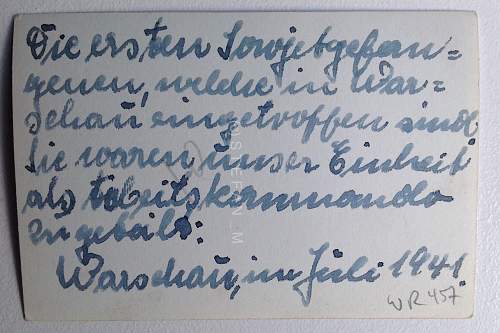 Die ersten Sowjetgefan=
genen, welche in War=
schau eingetroffen sind
Sie waren unser Einheit
als Arbeitskommando
zugeteilt:
Warschau, im Juli 1941.
WR 457